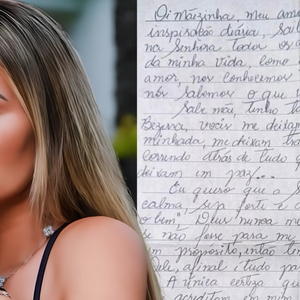 Oi mãezinha, meu am
inspiração diária, sai
na Senhora todos os d
da minha vida, como
amor, nos conhecemos
nós sabemos o que
Sabe mãe, tenho t
Bezerra, vocês me deixam
minhada, me deixam tra
correndo atrás de tudo q
deixam em paz...
Eu quero que a
calma, seja forte e
o bem", Deus nunca m
se não fosse para me
um propósito, então ten
ele, afinal é tudo pa
A única certeza q
acreditam em mim